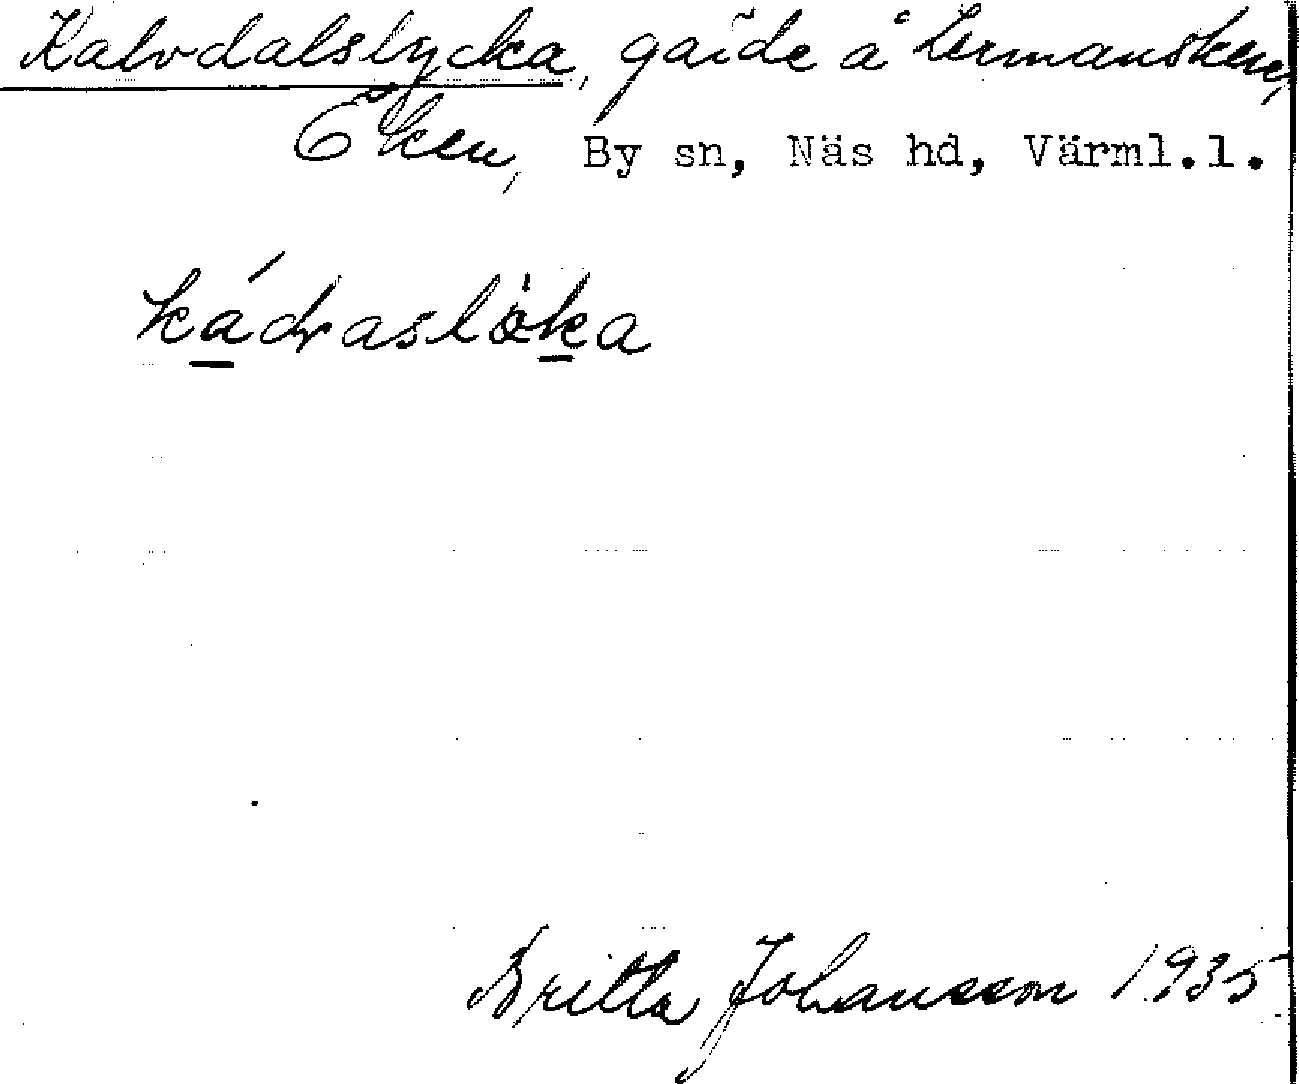 Kalvdalslycka, gärde å Lermanskere,
Eken, By sn, Näs hd, Värml.l.
kádraslö̀ka
Britta Johansson 1935